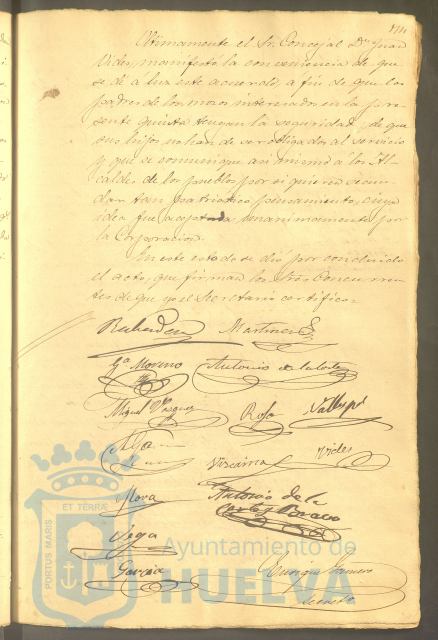 Ultimamente el Sr. Concejal Dn. Juan
Vides, manifestó la conveniencia de que
se dé á luz este acuerdo, a fin de que los
padres de los mozos interesados en la pre-
sente quinta tengan la seguridad, de que
sus hijos no han de ser obligados al servicio
y que se comunique asi mismo á los Al-
caldes de los pueblos por si quieren secun-
dar tan patriotico pensamiento, cuya
idea fue aceptada unanimamente por
la Corporacion.
En este estado se dió por concluido
el acto, que firman los Sres. Concurren-
tes de que yo el Secretario certifico=
Martinez
Ga. Moreno Antonio de la Corte
Miguel Vazquez Rofo
Vizcaino Vides
Mora Antonio de la
Corte y Bravo
Vega
Garcia Enrique
PORTUS MARIS ET TERRÆ
Ayuntamiento de
HUELVA